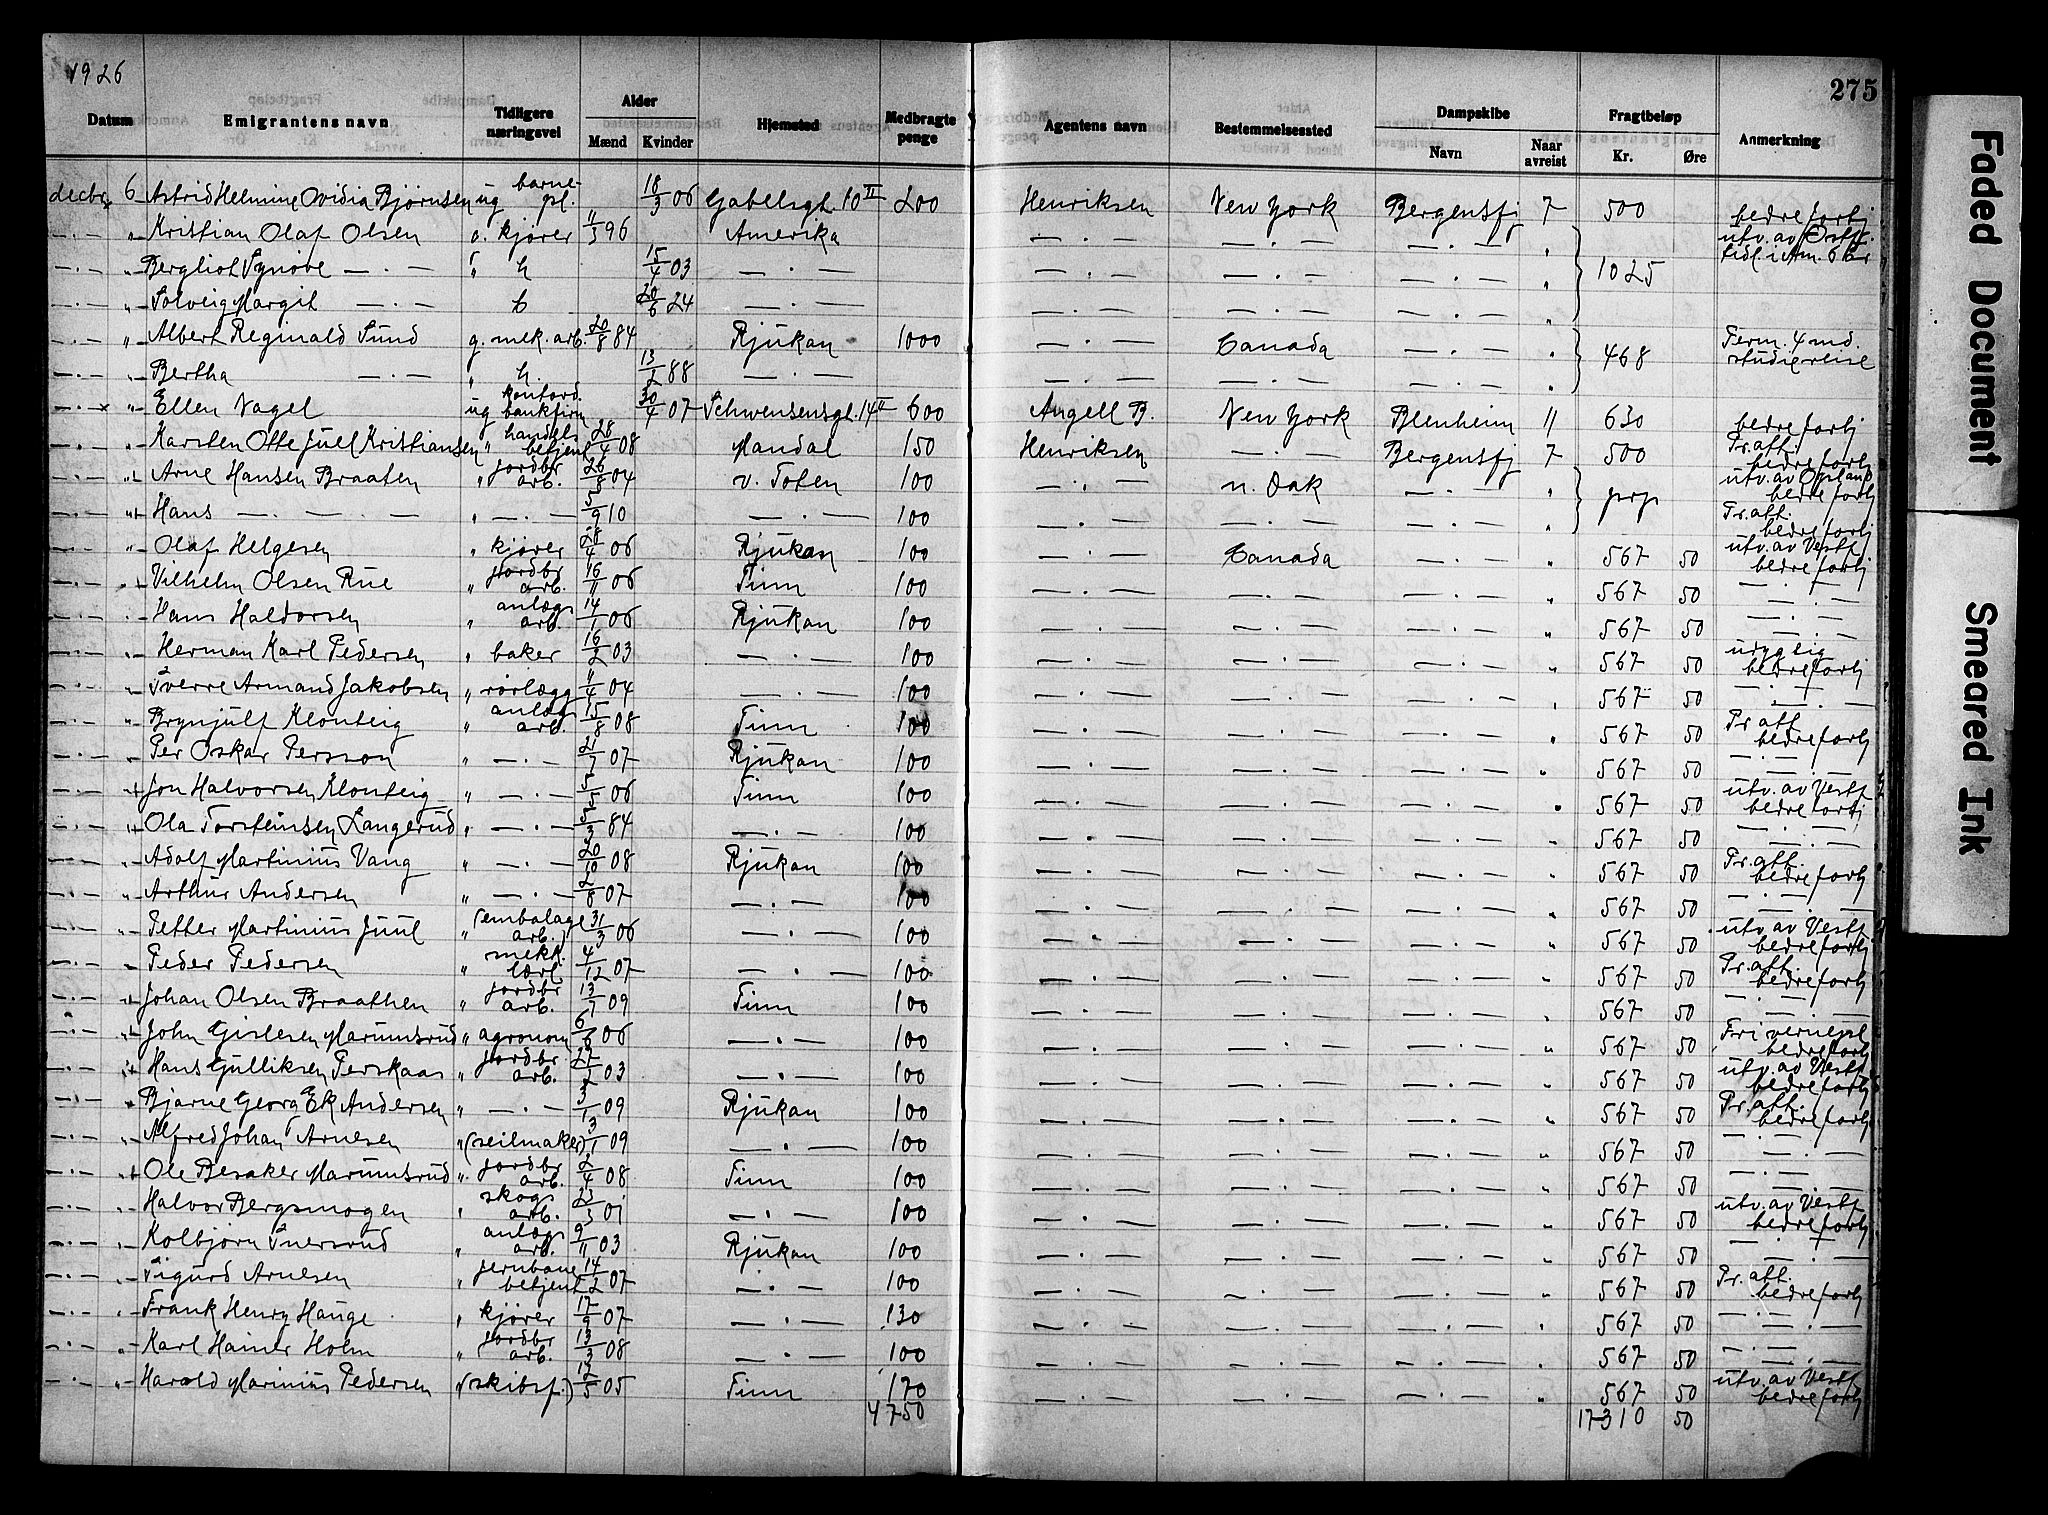 1926
275
Datum Emigrantens navn Tidligere næringsvei Alder Mænd Kvinder Hjemsted Medbragte penge Agentens navn Bestemmelsessted Dampskibe Navn Naar avreist Fragtbeløp Kr. Øre Anmerkning
decbr. 6 Astrid Helmine Ovidia Bjørnsen ug barnepl. 18/3 06 Gabelsgt 10 II 200 Henriksen New York Bergensfj 7 500 bedre forhj
— . — " Kristian Olaf Olsen g. kjører 11/3 96 Amerika — . — — . — — . — " 1025 utv. av Østf. tidl. i Am. 6 år
— . — " Bergliot Synøve — . — " h 15/4 03 — . — — . — — . — — . — "
— . — " Solveig Margit — . — b 20/6 24 — . — — . — — . — — . — "
— . — " Albert Reginald Sund g. mek. arb. 20/8 84 Rjukan 1000 — . — Canada — . — " 468 Ferm. 4 md. studiereise
— . — " Bertha — . — " h. 13/2 88 — . — — . — — . — — . — "
— . — x " Ellen Nagel ug kontord. bankfirm 30/4 07 Schwensensgt. 14 II 600 Angell B. New York Blenheim 11 630 bedre forhj
— . — " Karsten Otto Juel Kristiansen " handels betjent 28/4 08 Mandal 150 Henriksen — . — Bergensfj 7 500 Pr. att. bedre forhj
— . — " Arne Hansen Braaten " jordbr arb. 26/8 04 v. Toten 100 — . — n. Dak — . — " prp utv. av Opland bedre forhj
— . — " Hans — . — . — " — . — 5/9 10 — . — 100 — . — — . — — . — " Pr. att. bedre forhj
" Olaf Helgesen " kjører 28/4 06 Rjukan 100 — . — Canada — . — " 567 50 utv. av Vestf bedre forhj
— . — " Vilhelm Olsen Rue " jordbr arb. 16/11 06 Tinn 100 — . — — . — — . — " 567 50 — . —
— . — " Hans Haldorsen " anlægs arb. 14/1 06 Rjukan 100 — . — — . — — . — " 567 50 — . —
— . — " Herman Karl Pedersen " baker 16/2 03 — . — 100 — . — — . — — . — " 567 50 udygtig bedre forhj
— . — " Sverre Armand Jakobsen " rørlægg 11/4 04 — . — 100 — . — — . — — . — " 567 50 — . —
— . — " Brynjulf Klonteig " anlægs arb. 15/8 08 Tinn 100 — . — — . — — . — " 567 50 Pr att. bedre forhj
— . — " Per Oskar Persson " — . — 21/7 07 Rjukan 100 — . — — . — — . — " 567 50 — . —
— . — " Jon Halvorsen Klonteig " — . — 5/5 06 Tinn 100 — . — — . — — . — " 567 50 utv. av Vestf bedre forhj
— . — " Ola Torsteinsen Langerud " — . — 5/3 84 — . — 100 — . — — . — — . — " 567 50 — . —
— . — " Adolf Martinius Vang " — . — 20/10 08 Rjukan 100 — . — — . — — . — " 567 50 Pr. att. bedre forhj
— . — " Arthur Andersen " — . — 2/8 07 — . — 100 — . — — . — — . — " 567 50 — . —
— . — " Petter Martinius Juul " (embalage arb.) 31/3 06 — . — 100 — . — — . — — . — " 567 50 utv. av Vestf bedre forhj
— . — " Peder Pedersen " mekk. lærl. 4/12 07 — . — 100 — . — — . — — . — " 567 50 Pr. att. bedre forhj
— . — " Johan Olsen Braathen " jordbr arb. 13/7 09 Tinn 100 — . — — . — — . — " 567 50 — . —
— . — " John Gislesen Marumsrud " agronom 6/6 06 — . — 100 — . — — . — — . — " 567 50 Fri vernepl bedre forhj
— . — " Hans Gulliksen Perskaas " jordbr. arb. 27/2 03 — . — 100 — . — — . — — . — " 567 50 utv. av Vestf bedre forhj
— . — " Bjarne Georg Ek Andersen " — . — 3/1 09 Rjukan 100 — . — — . — — . — " 567 50 Pr. att. bedre forhj
— . — " Alfred Johan Arnesen " (seilmaker) 3/1 09 — . — 100 — . — — . — — . — " 567 50 — . —
— . — " Ole Besaker Marumsrud " jordbr arb. 2/4 08 Tinn 100 — . — — . — — . — " 567 50 — . —
— . — " Halvor Bergsmogen " skogs arb. 23/3 01 — . — 100 — . — — . — — . — " 567 50 utv. av Vestf bedre forhj
— . — " Kolbjørn Snersrud " anlægs arb. 9/11 03 Rjukan 100 — . — — . — — . — " 567 50 — . —
— . — " Sigurd Arnesen " jernbane betjent 14/2 07 — . — 100 — . — — . — — . — " 567 50 Pr. att. bedre forhj
— . — " Frank Henry Hauge " kjører 17/9 07 — . — 130 — . — — . — — . — " 567 50 — . —
— . — " Karl Hainer Holm " jordbr arb. 13/3 08 — . — 100 — . — — . — — . — " 567 50 — . —
— . — " Harald Marinius Pedersen " (skibsf.) 12/5 05 Tinn 170 — . — — . — — . — " 567 50 utv. av Vestf bedre forhj
4750 17310 50
Faded Document
Smeared Ink